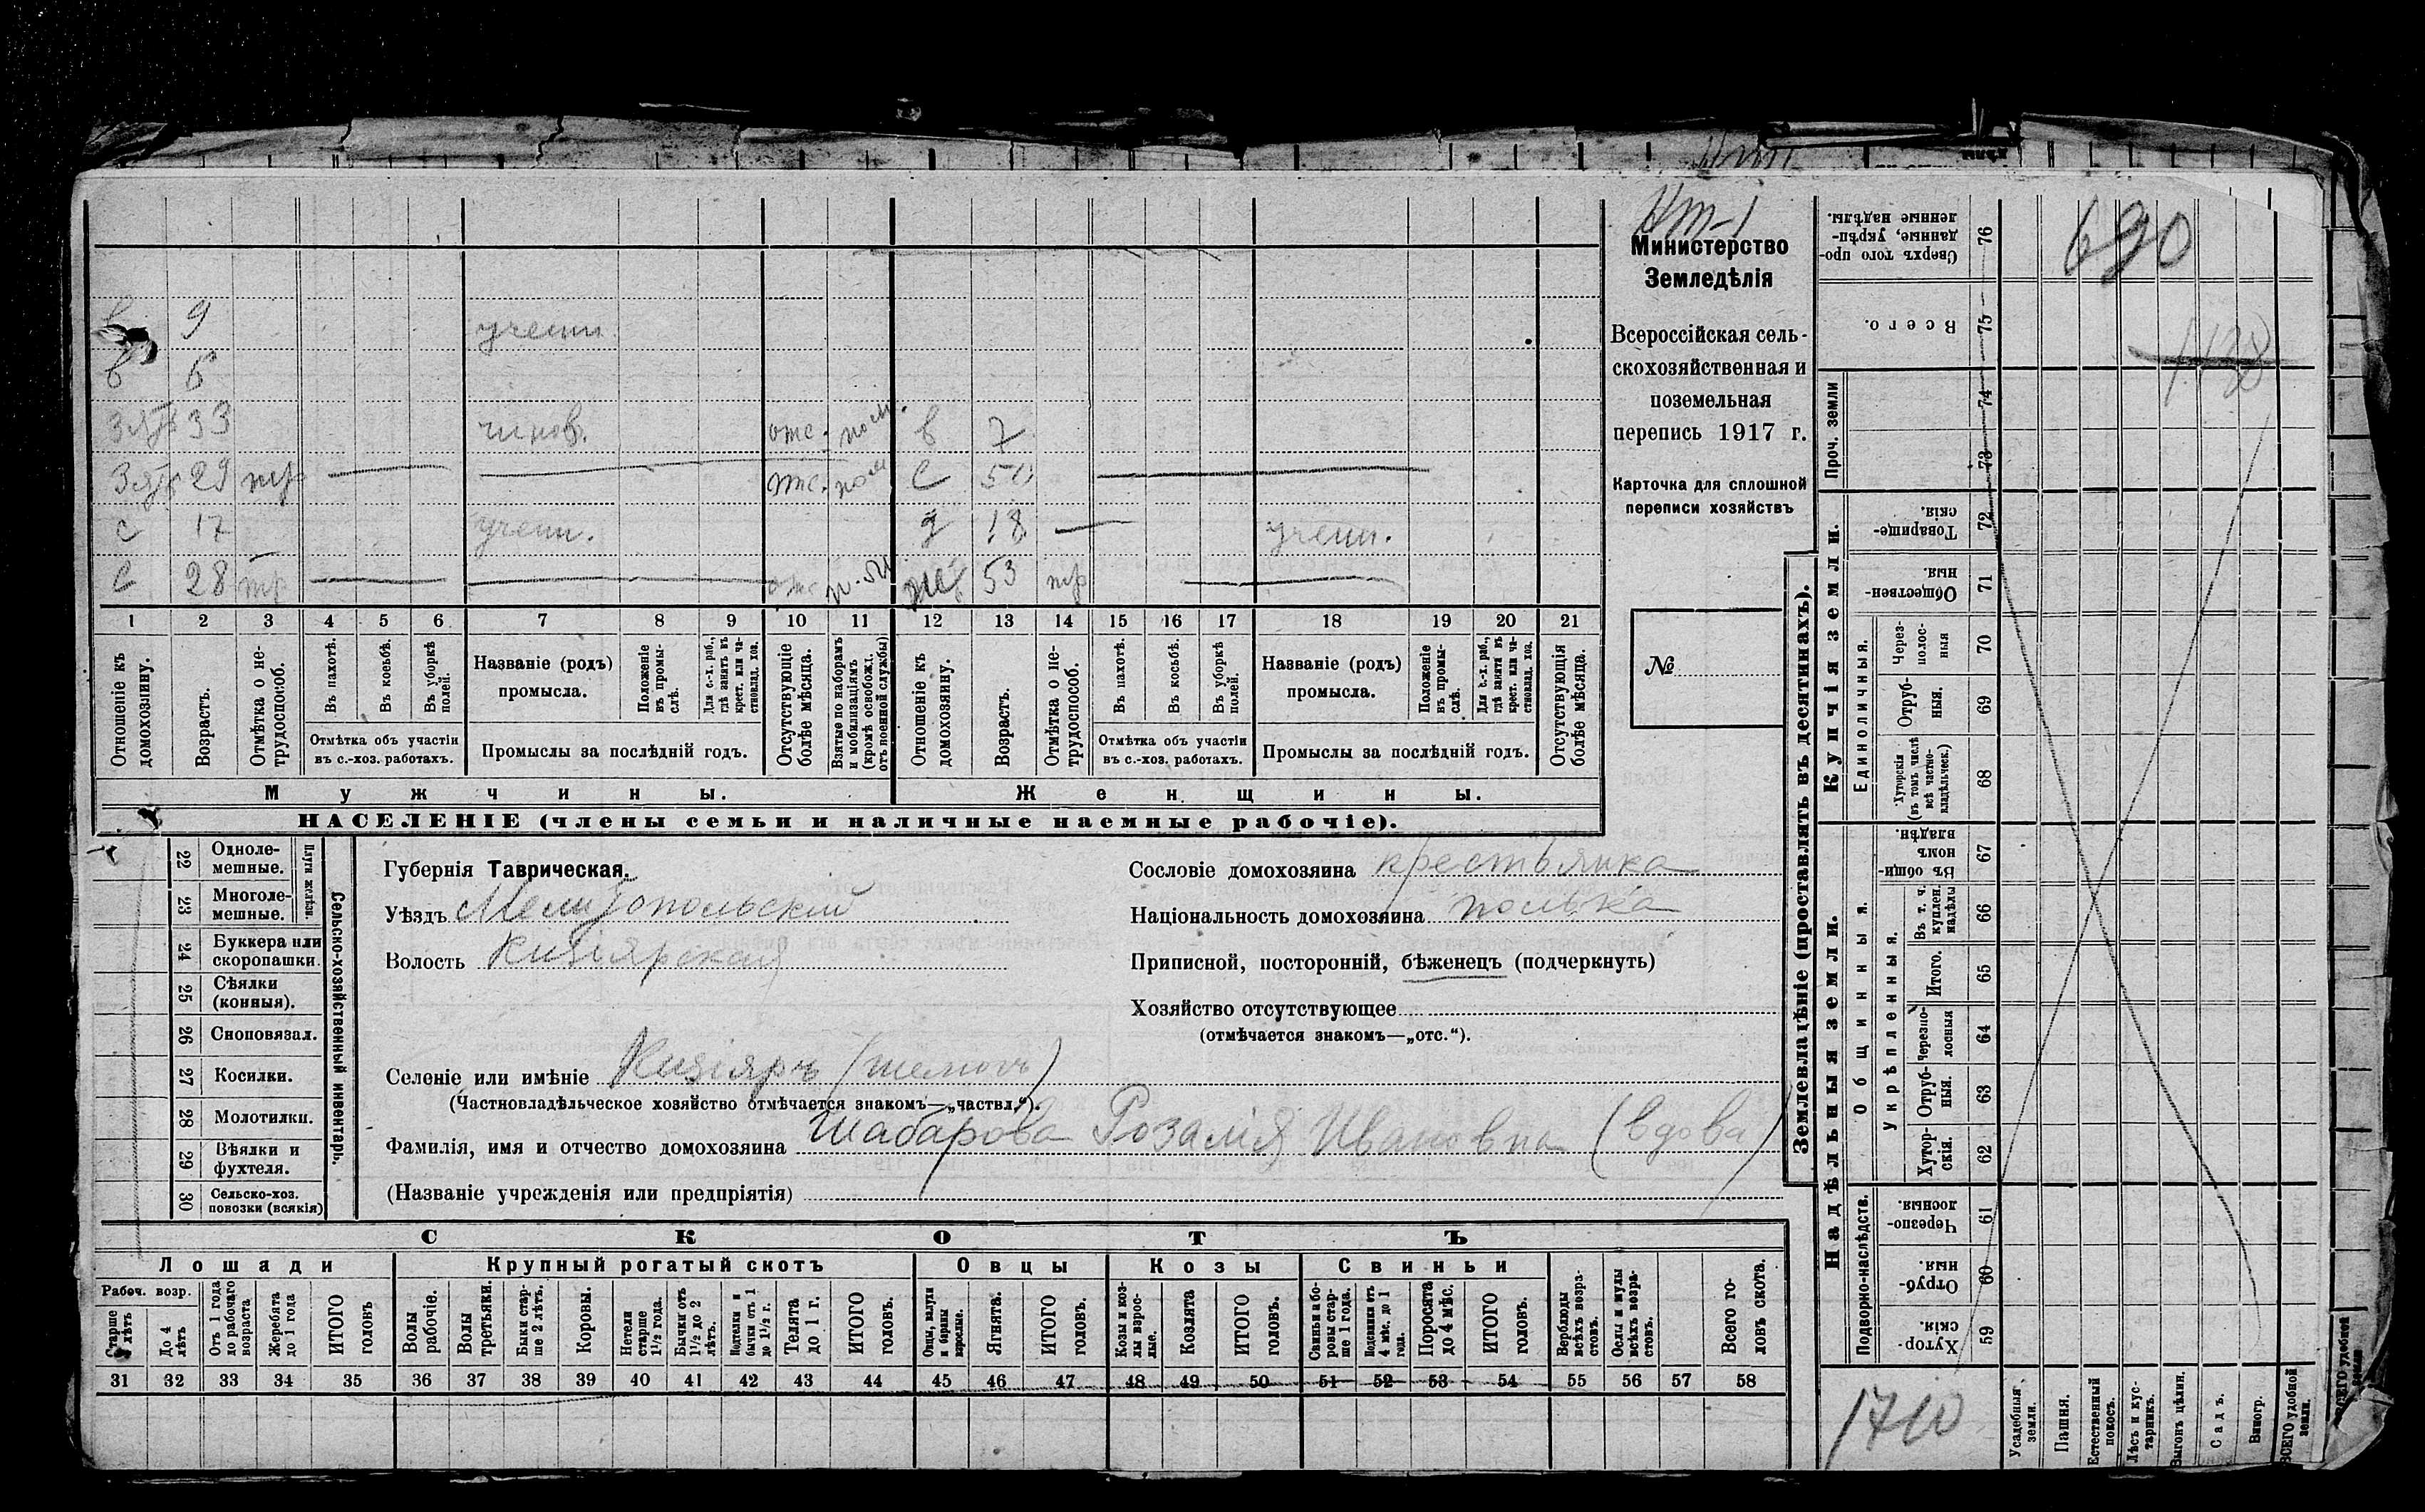 Ит-1
Министерство
Земледѣлія
Всероссійская сель-
скохозяйственная и
поземельная
перепись 1917 г.
Карточка для сплошной
переписи хозяйствъ
№
690
1710
в 9 учени
в 6
Зять 33 чинов. отс. в 7
Зять 29 тр отс. с 50
с 17 учени. д 18 учени.
с 28 тр отс 53 тр
1 2 3 4 5 6 7 8 9 10 11 12 13 14 15 16 17 18 19 20 21
Отношеніе къ домохозяину.
Возрастъ.
Отмѣтка о не-трудоспособ.
Въ пахотѣ.
Въ косьбѣ.
Въ уборкѣ полей.
Отмѣтка объ участіи
въ с.-хоз. работахъ.
Названіе (родъ)
промысла.
Положеніе въ промы-слѣ.
Для с.-х. раб., гдѣ занятъ въ крест. или ча-стновлад. хоз.
Промыслы за послѣдній годъ.
Отсутствующіе болѣе мѣсяца.
Взятые по наборамъ и мобилизаціямъ (кромѣ освобожд. отъ военной службы)
Отношеніе къ домохозяину.
Возрастъ.
Отмѣтка о не-трудоспособ.
Въ пахотѣ.
Въ косьбѣ.
Въ уборкѣ полей.
Отмѣтка объ участіи
въ с.-хоз. работахъ.
Названіе (родъ)
промысла.
Положеніе въ промы-слѣ.
Для с.-х. раб., гдѣ занята въ крест. или ча-стновлад. хоз.
Промыслы за послѣдній годъ.
Отсутствующія болѣе мѣсяца.
Мужчины. Женщины.
НАСЕЛЕНІЕ (члены семьи и наличные наемные рабочіе).
Сельско-хозяйственный инвентарь.
Плуги желѣзн.
22 Одноле-мешные.
23 Многоле-мешные.
24 Буккера или скоропашки.
25 Сѣялки (конныя).
26 Сноповязал.
27 Косилки.
28 Молотилки.
29 Вѣялки и фухтеля.
30 Сельско-хоз. повозки (всякія)
Губернія Таврическая.
Уѣздъ Мелитопольскій
Волость Кизіярская
Сословіе домохозяина крестьянка
Національность домохозяина полька
Приписной, посторонній, бѣженецъ (подчеркнуть)
Хозяйство отсутствующее
(отмѣчается знакомъ—„отс.“).
Селеніе или имѣніе Кизіяръ
(Частновладѣльческое хозяйство отмѣчается знакомъ—„частвл.“).
Фамилія, имя и отчество домохозяина Шабарова Розалія Ивановна (вдова)
(Названіе учрежденія или предпріятія)
СКОТЪ
Лошади Крупный рогатый скотъ Овцы Козы Свиньи
Рабоч. возр.
Старше 4 лѣтъ
До 4 лѣтъ
Отъ 1 года до рабочаго возраста
Жеребята до 1 года
ИТОГО головъ
Волы рабочіе.
Волы третьяки.
Быки стар-ше 2 лѣтъ.
Коровы.
Нетели старше 1½ года.
Бычки отъ 1½ до 2 лѣтъ.
Нетелки и бычки отъ 1 до 1½ г.
Телята до 1 г.
ИТОГО головъ.
Овцы, валухи и бараны взрослые.
Ягнята.
ИТОГО головъ.
Козы и коз-лы взрос-лые.
Козлята
ИТОГО головъ.
Свиньи и бо-ровы стар-ше 1 года.
Подсвинки отъ 4 мѣс. до 1 года.
Поросята до 4 мѣс.
ИТОГО головъ.
Верблюды всѣхъ возра-стовъ.
Ослы и мулы всѣхъ возра-стовъ.
Всего го-ловъ скота.
31 32 33 34 35 36 37 38 39 40 41 42 43 44 45 46 47 48 49 50 51 52 53 54 55 56 57 58
Землевладѣніе (проставлять въ десятинахъ).
Проч. земли
Купчія земли.
Единоличныя.
Надѣльныя земли.
Общинныя.
Укрѣпленныя.
Подворно-наслѣдств.
Сверхъ того про-данные, укрѣп-ленные надѣлы. 76
Всего. 75
74
73
Товарище-скія. 72
Обществен-ныя. 71
Через-полос-ныя 70
Отруб-ныя. 69
Хуторскія (въ томъ числѣ всѣ частно-владѣльческ.) 68
Въ общин-номъ владѣн. 67
Въ т. ч. куплен. надѣлы 66
Итого. 65
Черезпо-лосныя 64
Отруб-ныя. 63
Хутор-скія. 62
Черезпо-лосныя. 61
Отруб-ныя. 60
Хутор-скія. 59
Усадебныя земли.
Пашня.
Естественный покосъ.
Лѣсъ и кус-тарникъ.
Выгонъ цѣлин.
Садъ.
Виногр.
ВСЕГО удобной земли.